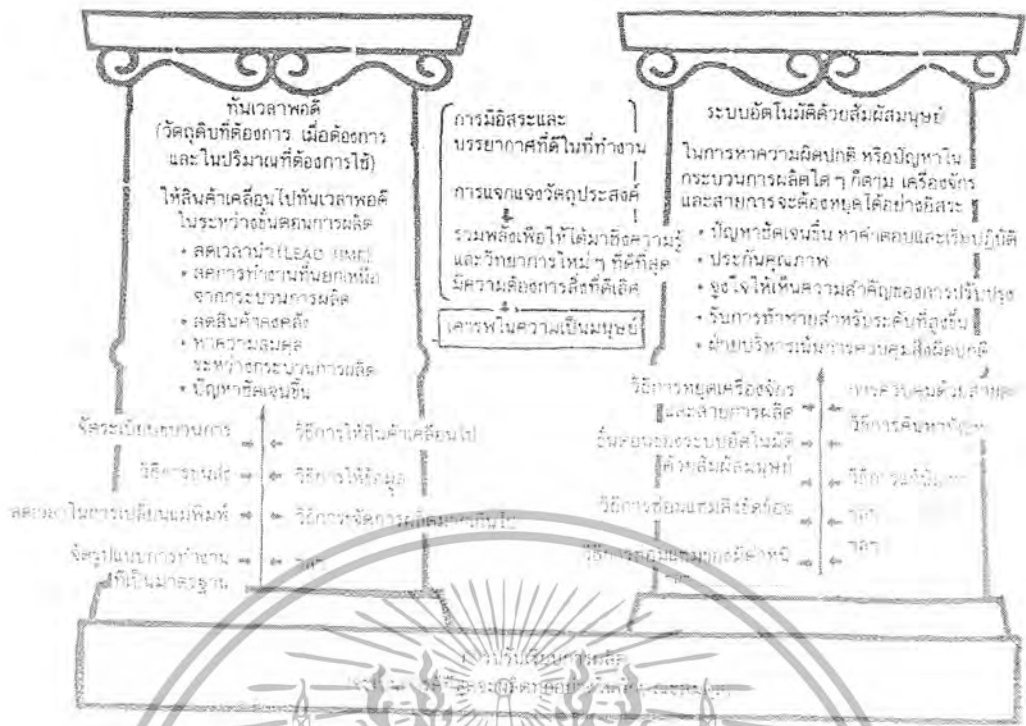 ทันเวลาพอดี
(วัตถุดิบที่ต้องการ เมื่อต้องการ
และในปริมาณที่ต้องการใช้)
ให้สินค้าเคลื่อนไปทันเวลาพอดี
ในระหว่างขั้นตอนการผลิต
• ลดเวลานำ (LEAD TIME)
• ลดการทำงานที่นอกเหนือ
จากกระบวนการผลิต
• ลดสินค้าคงคลัง
• หาความสมดุล
ระหว่างกระบวนการผลิต
• ปัญหาชัดเจนขึ้น
จัดระเบียบขบวนการ
วิธีการขนส่ง
ลดเวลาในการเปลี่ยนแม่พิมพ์
จัดรูปแบบการทำงาน
ที่เป็นมาตรฐาน
วิธีการให้สินค้าเคลื่อนไป
วิธีการให้ข้อมูล
วิธีการขจัดการผลิตมากเกินไป
ฯลฯ
การมีอิสระและ
บรรยากาศที่ดีในที่ทำงาน
การแจกแจงวัตถุประสงค์
รวมพลังเพื่อให้ได้มาซึ่งความรู้
และวิทยาการใหม่ ๆ ที่ดีที่สุด
มีความต้องการสิ่งที่ดีเลิศ
เคารพในความเป็นมนุษย์
ระบบอัตโนมัติด้วยสัมผัสมนุษย์
ในการหาความผิดปกติ หรือปัญหาใน
กระบวนการผลิตใด ๆ ก็ตาม เครื่องจักร
และสายการจะต้องหยุดได้อย่างอิสระ
• ปัญหาชัดเจนขึ้น หาคำตอบและเริ่มปฏิบัติ
• ประกันคุณภาพ
• จูงใจให้เห็นความสำคัญของการปรับปรุง
• รับการท้าทายสำหรับระดับที่สูงขึ้น
• ฝ่ายบริหารเน้นการควบคุมสิ่งผิดปกติ
วิธีการหยุดเครื่องจักร
และสายการผลิต
ขั้นตอนของระบบอัตโนมัติ
ด้วยสัมผัสมนุษย์
วิธีการซ่อมแซมสิ่งขัดข้อง
วิธีการซ่อมแซมของมีตำหนิ
ฯลฯ
การควบคุมด้วยสายตา
วิธีการค้นหาปัญหา
วิธีการแก้ปัญหา
ฯลฯ
ฯลฯ
การปรับเรียบการผลิต